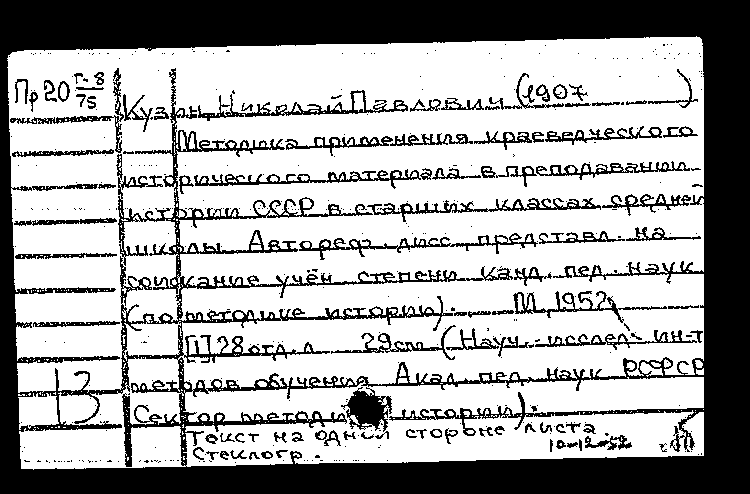 Пр20 Г-8/75
Кузин, Николай Павлович (1907 )
Методика применения краеведческого
исторического материала в преподавании
истории СССР в старших классах средней
школы. Автореф. дисс., представл. на
соискание учён. степени канд. пед. наук
(по методике истории). М., 1952,
[1], 28 отд. л. 29 см. (Науч.-исслед. ин-т
методов обучения Акад. пед. наук РСФСР
13
Сектор методики истории).
Текст на одной стороне листа.
Стеклогр.
10-12-52